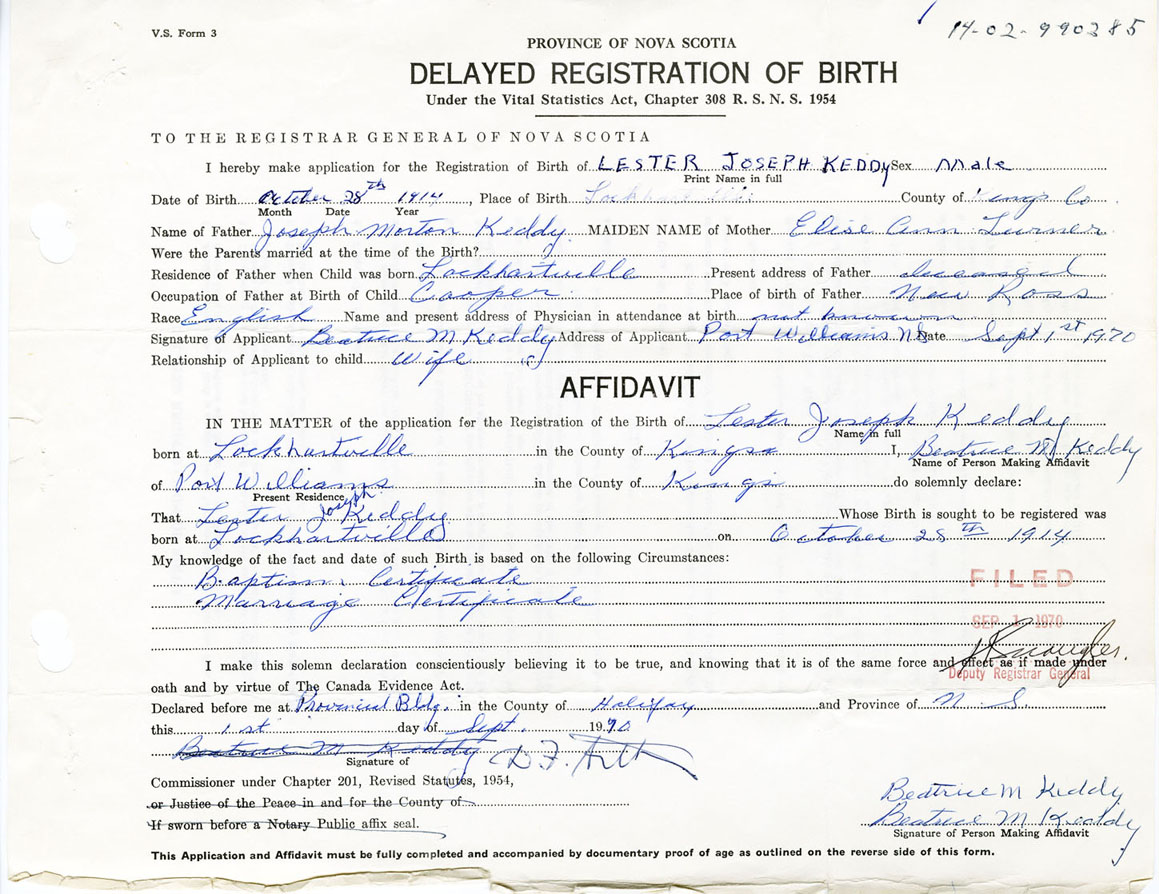 V.S. Form 3
14-02-990285
PROVINCE OF NOVA SCOTIA
DELAYED REGISTRATION OF BIRTH
Under the Vital Statistics Act, Chapter 308 R. S. N. S. 1954
TO THE REGISTRAR GENERAL OF NOVA SCOTIA
I hereby make application for the Registration of Birth of LESTER JOSEPH KEDDY Sex Male
Print Name in full
Date of Birth October 28th 1914, Place of Birth County of Kings Co
Month Date Year
Name of Father Joseph Morton Keddy MAIDEN NAME of Mother Elise Ann Turner
Were the Parents married at the time of the Birth?
Residence of Father when Child was born Lockhartville Present address of Father deceased
Occupation of Father at Birth of Child Cooper Place of birth of Father New Ross
Race English Name and present address of Physician in attendance at birth not known
Signature of Applicant Beatrice M Keddy Address of Applicant Port Williams NS Date Sept 1st 1970
Relationship of Applicant to child Wife
AFFIDAVIT
IN THE MATTER of the application for the Registration of the Birth of Lester Joseph Keddy
Name in full
born at Lockhartville in the County of Kings I, Beatrice M Keddy
Name of Person Making Affidavit
of Port Williams in the County of Kings do solemnly declare:
Present Residence
That Lester Joseph Keddy Whose Birth is sought to be registered was
born at Lockhartville on October 28th 1914
My knowledge of the fact and date of such Birth is based on the following Circumstances:
Baptism Certificate
Marriage Certificate
FILED
SEP 1 1970
I make this solemn declaration conscientiously believing it to be true, and knowing that it is of the same force and effect as if made under
Deputy Registrar General
oath and by virtue of The Canada Evidence Act.
Declared before me at Provincial Bldg. in the County of Halifax and Province of N. S.
this 1st day of Sept. 1970
Beatrice M Keddy
Signature of
Commissioner under Chapter 201, Revised Statutes, 1954,
or Justice of the Peace in and for the County of
If sworn before a Notary Public affix seal.
Beatrice M Keddy
Beatrice M Keddy
Signature of Person Making Affidavit
This Application and Affidavit must be fully completed and accompanied by documentary proof of age as outlined on the reverse side of this form.